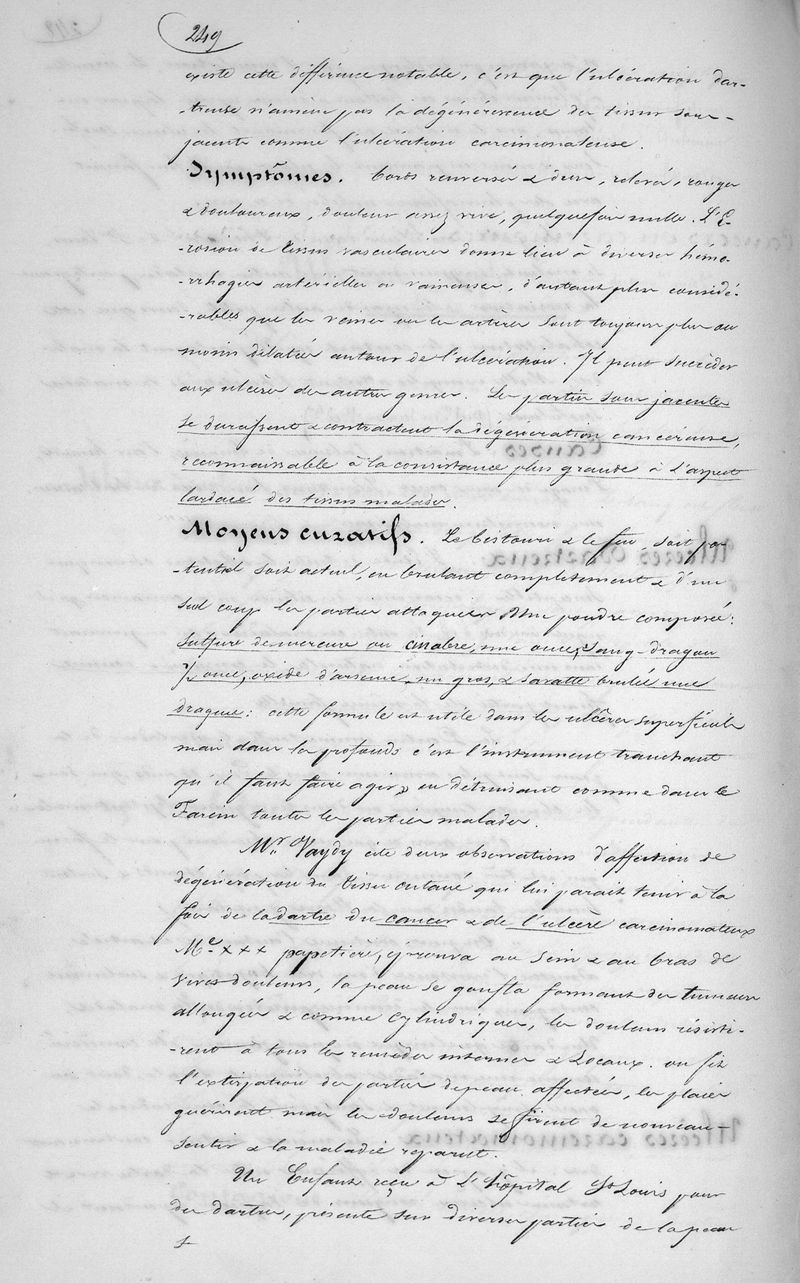 249
existe cette différence notable, c'est que l'ulcération dar-
-treuse n'amène pas la dégénérescence des tissus sous-
jacents comme l'ulcération carcinomateuse.
Symptômes. bords renversés & durs, relevés, rouges
& douloureux, douleur assez vive, quelquefois nulle. L'E-
-rosion de tissus vasculaires donne lieu à diverses hémo-
-rrhagies artérielles ou vaineuses, d'autant plus considé-
-rables que les veines ou les artères sont toujours plus ou
moins dilatées autour de l'ulcération. Il peut succéder
aux ulcères des autres genres. Les parties sous jacentes
se durcissent & contractent la dégénération cancereuse,
reconnaissable à la consistance plus grande à l'aspect
lardacé des tissus malades.
Moyens curatifs. Le bistouri & le feu, soit po-
-tentiel soit actuel, en brulant complètement & d'un
seul coup les parties attaquées Une poudre composée:
sulfure de mercure ou cinabre, une once, sang-dragon
½ once, oxide d'arsenic, un gros, & savatte brulée une
dragme: cette formule est utile dans les ulcères superficiels
mais dans les profonds c'est l'instrument tranchant
qu'il faut faire agir, en détruisant comme dans le
Farcin toutes les parties malades.
Mr. Vaydy cite deux observations d'affection de
dégénération du tissu cutané qui lui parait tenir à la
fois de la dartre du cancer & de l'ulcère carcinomateux
Me. xxx papetière, éprouva au sein & au bras de
vives douleurs, la peau se gonfla formant des tumeurs
allongées & comme cylindriques, les douleurs résisti-
-rent à tous les remèdes internes & Locaux. on fit
l'extirpation des parties de peau affectées, les plaies
guérirent mais les douleurs se firent de nouveau
sentir & la maladie reparut.
Un Enfant reçu à L'hôpital St Louis pour
des dartres, présente sur diverses parties de la peau